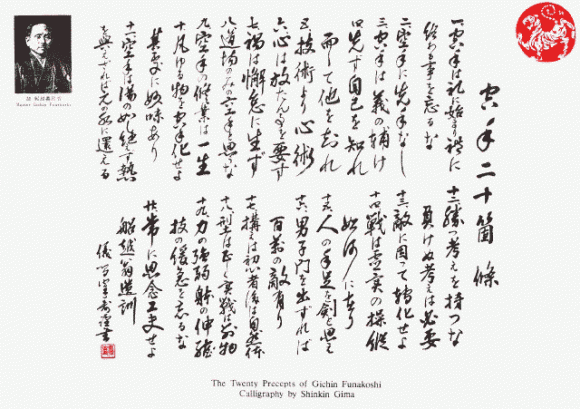 空手二十箇條
一空手は礼に始まり礼に
終わる事を忘るな
二空手に先手なし
三空手は義の輔け
四先ず自己を知れ
而して他を知れ
五技術より心術
六心は放たん事を要す
七禍は懈怠に生ず
八道場のみの空手と思うな
九空手の修業は一生
十凡ゆる物を空手化せよ
其処に妙味あり
十一空手は湯の如し絶えず熱
を與えざれば元の水に還える
十二勝つ考えを持つな
負けぬ考えは必要
十三敵に因って轉化せよ
十四戦は虚実の操縦
如何に在り
十五人の手足を剣と思え
十六男子門を出ずれば
百萬の敵有り
十七構えは初心者後は自然体
十八型は正しく実戦は別物
十九力の強弱躰の伸縮
技の緩急を忘るな
二十常に思念工夫せよ
船越翁遺訓
Gichin Funakoshi
The Twenty Precepts of Gichin Funakoshi
Calligraphy by Shinkin Gima